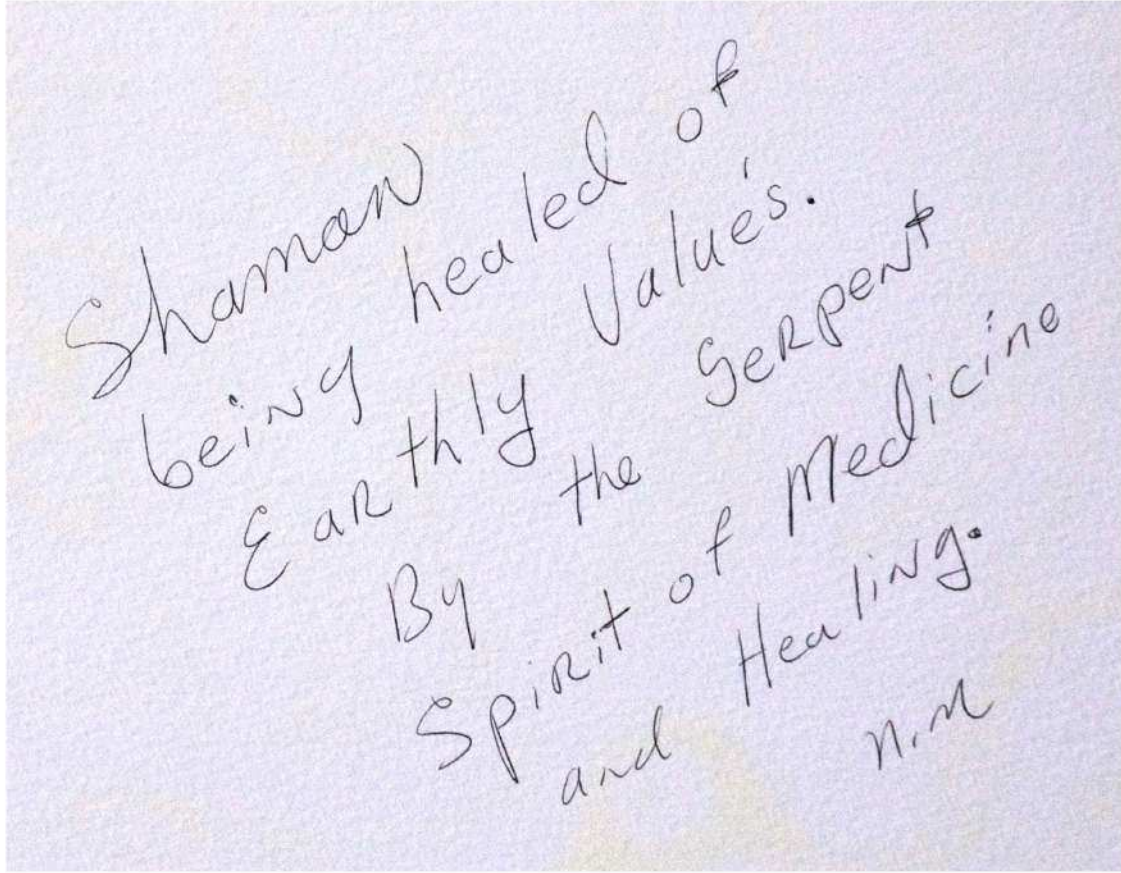 Shaman
being healed of
Earthly Value's.
By the Serpent
Spirit of Medicine
and Healing.
N.M